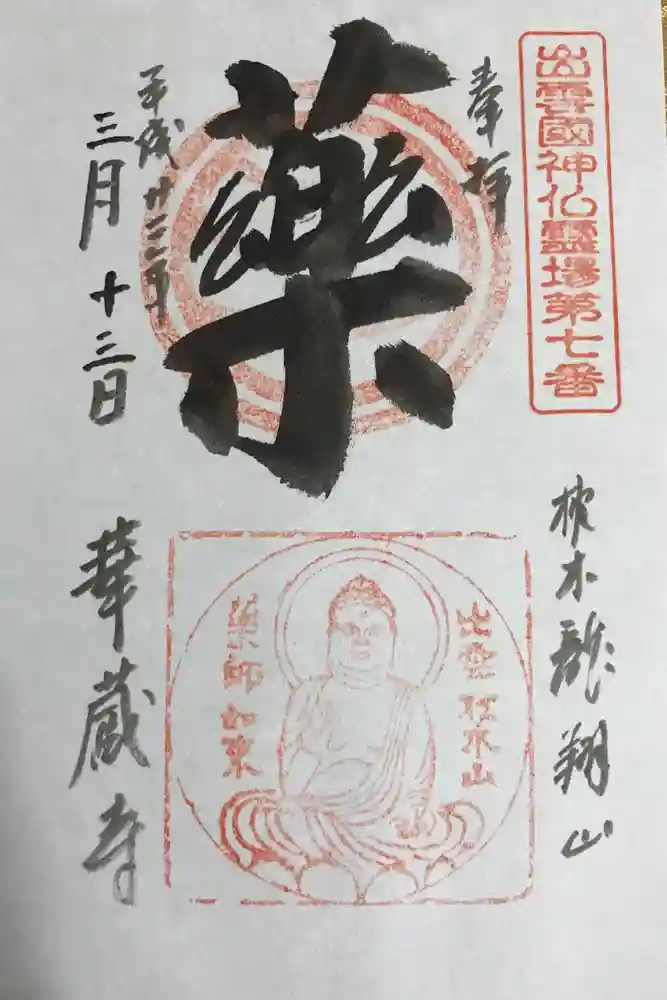 出雲國神仏霊場第七番
奉拝
薬
平成廿三年
三月十三日
枕木龍翔山
出雲枕木山
薬師如来
華蔵寺